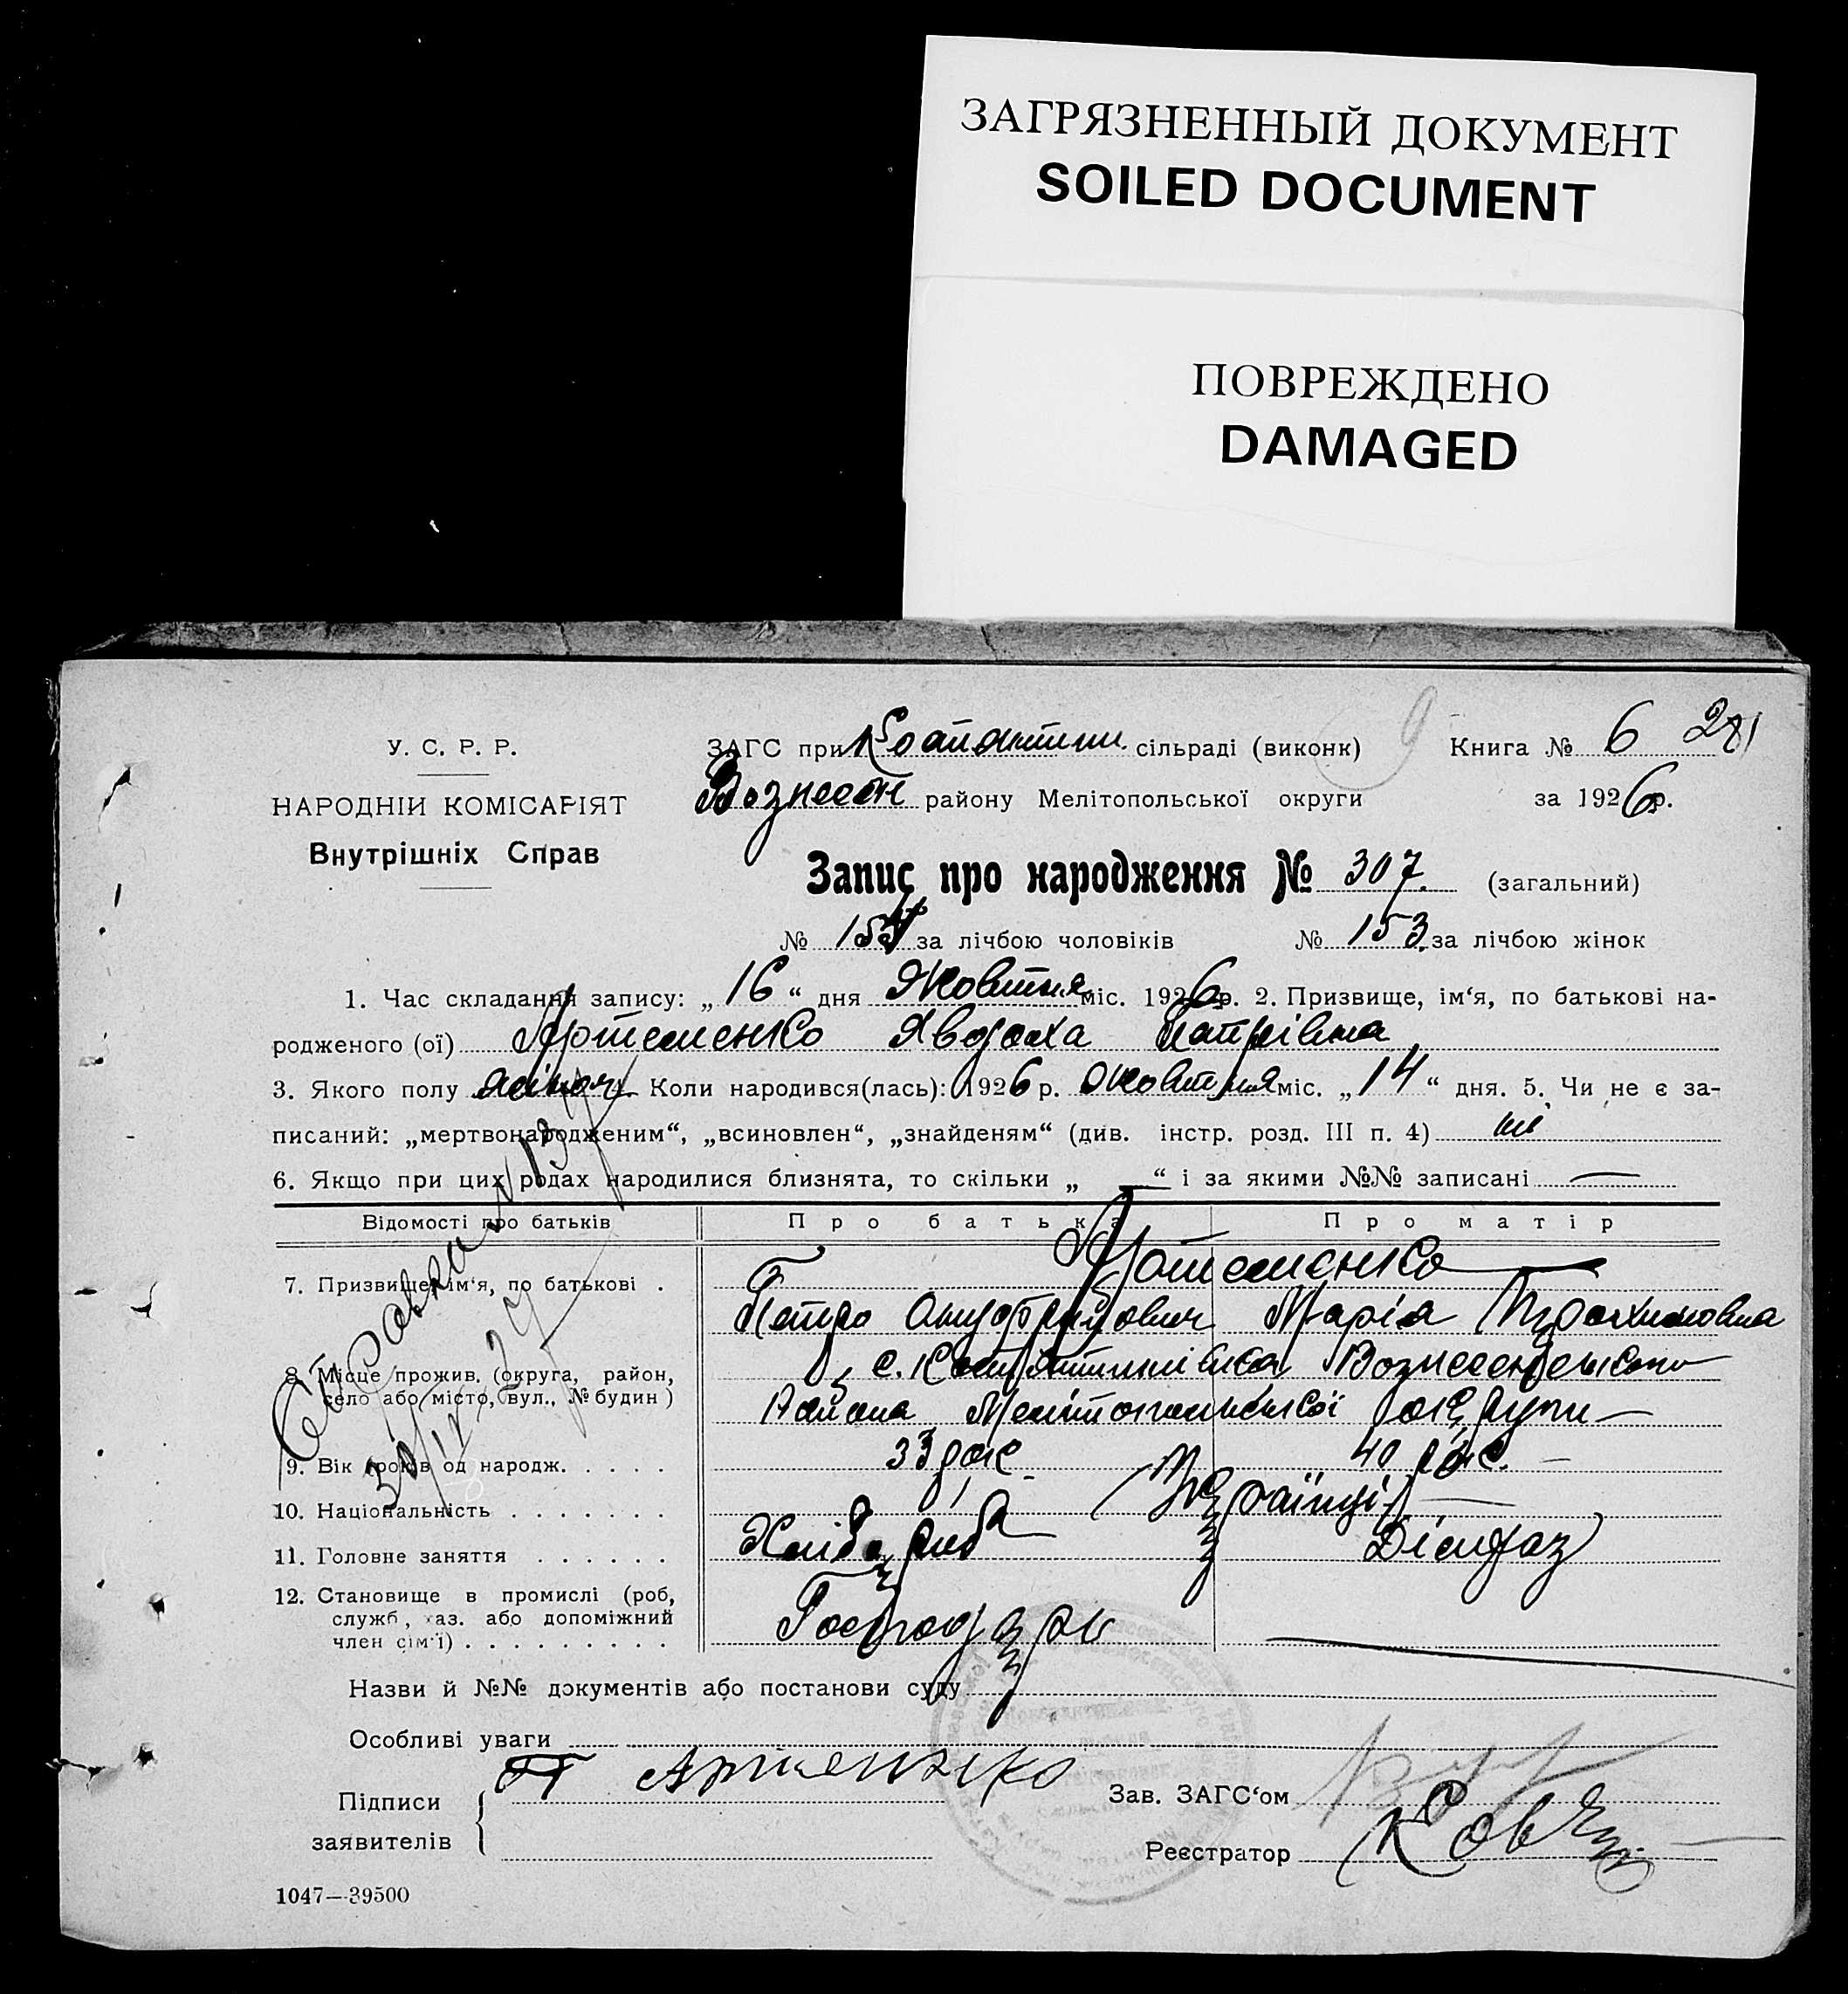 ЗАГРЯЗНЕННЫЙ ДОКУМЕНТ
SOILED DOCUMENT
ПОВРЕЖДЕНО
DAMAGED
У. С. Р. Р.
НАРОДНІЙ КОМІСАРІЯТ
Внутрішніх Справ
ЗАГС при сільраді (виконк) 9 Книга № 6 281
Вознесен району Мелітопольської округи за 1926 р.
Запис про народження № 307. (загальний)
№ 154 за лічбою чоловіків № 153. за лічбою жінок
1. Час складання запису: „16“ дня Жовтня міс. 1926 р. 2. Призвище, ім‘я, по батькові на-
родженого (ої) Артеменко Явдоха Петрівна
3. Якого полу жіноч 4. Коли народився(лась): 1926 р. Жовтня міс. „14“ дня. 5. Чи не є за-
писаний: „мертвонародженим“, „всиновлен“, „знайденям“ (див. інстр. розд. III п. 4) ні
6. Якщо при цих родах народилися близнята, то скільки „—“ і за якими №№ записані —
Відомості про батьків Про батька Про матір
7. Призвище, ім‘я, по батькові . Артеменко
Петро Онуфрійович Марія Трохимовна
8. Місце прожив. (округа, район, с. Костянтинівка Вознесенського
село або місто, вул., № будин) Района Мелітопольської округи —
9. Вік (років од народж. . . . . 33 рок 40 рок. —
10. Національність . . . . . . . Українці —
11. Головне заняття . . . . . . Хлібороб Домгаз
12. Становище в промислі (роб,
служб, хаз. або допоміжний
член сім‘ї) . . . . . . . . . Господарь
Назви й №№ документів або постанови суду
Особливі уваги
Підписи П Артеменко Зав. ЗАГС‘ом
заявителів Реєстратор
1047—39500